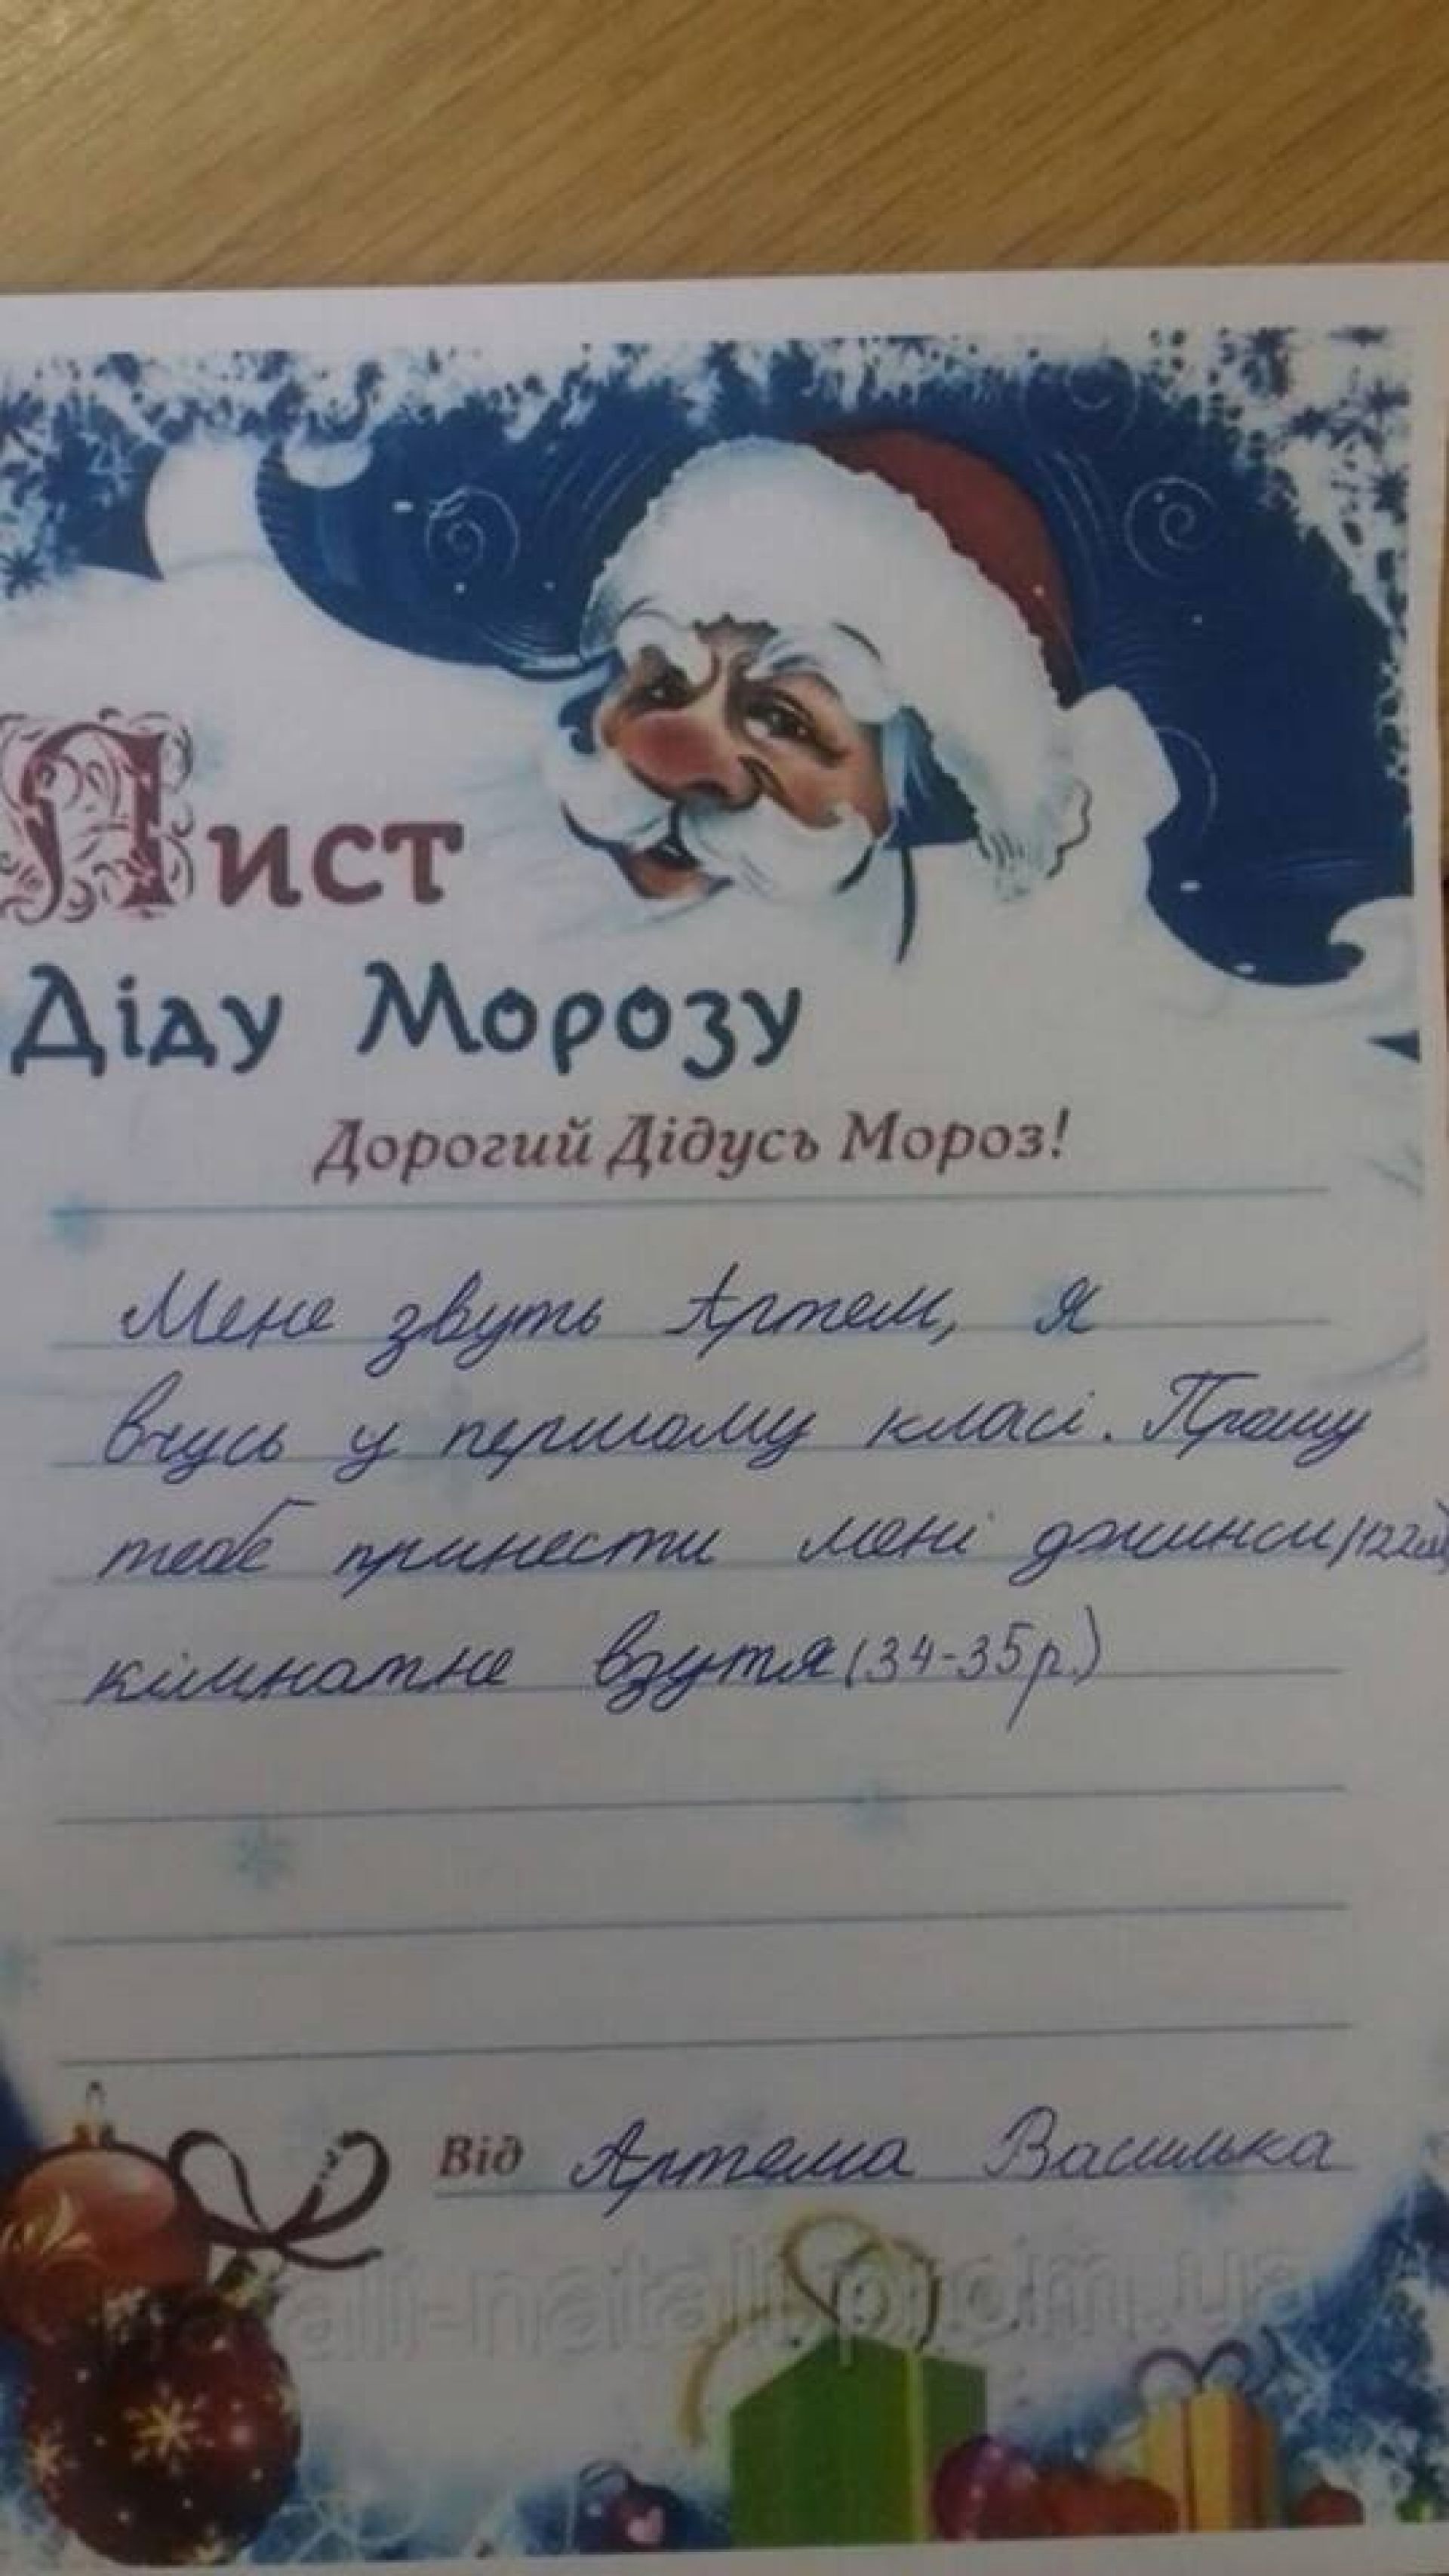 Лист
Діду Морозу
Дорогий Дідусь Мороз!
Мене звуть Артем, я
вчусь у першому класі. Прошу
тебе принести мені джинси (122см)
кімнатне взутя (34-35р.)
Від Артема Василька
ali-natali.prom.ua